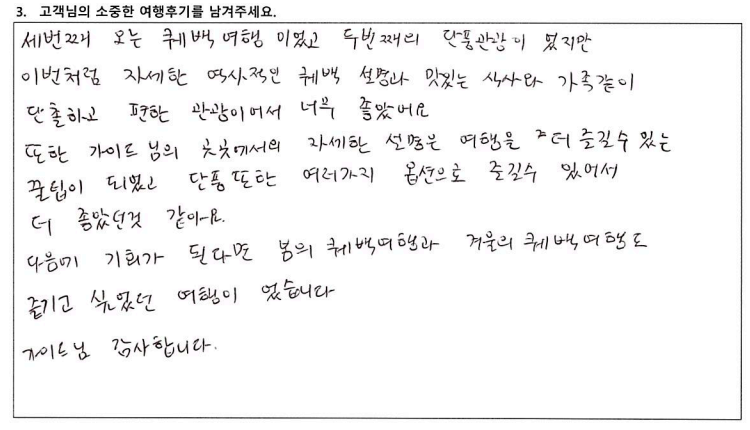 3. 고객님의 소중한 여행후기를 남겨주세요.
세번째 오는 퀘백여행 이었고 두번째의 단풍관광이 었지만
이번처럼 자세한 역사적인 퀘백 설명과 맛있는 식사와 가족같이
단촐하고 편한 관광이어서 너무 좋았어요
또한 가이드님의 곳곳에서의 자세한 설명은 여행을 더 즐길수 있는
꿀팁이 되었고 단풍또한 여러가지 옵션으로 즐길수 있어서
더 좋았던것 같아요.
다음에 기회가 된다면 봄의 퀘백여행과 겨울의 퀘백여행도
즐기고 싶었던 여행이 었습니다
가이드님 감사합니다.